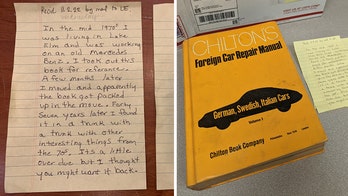 Recd 11.2.22 by mail to LE,
In the mid 1970ˢ I
was living in Lake
Elm and was working
on an old Mercedes
Benz. I took out this
book for reference.
A few months later
I moved and apparently
the book got packed
up in the move. Forty
Seven years later I found
it in a trunk with
a trunk with other
interesting things from
the 70ˢ. It's a little
over due but I thought
you might want it back.
CHILTON'S
Foreign Car Repair Manual
German, Swedish, Italian Cars
Volume 1
Chilton Book Company